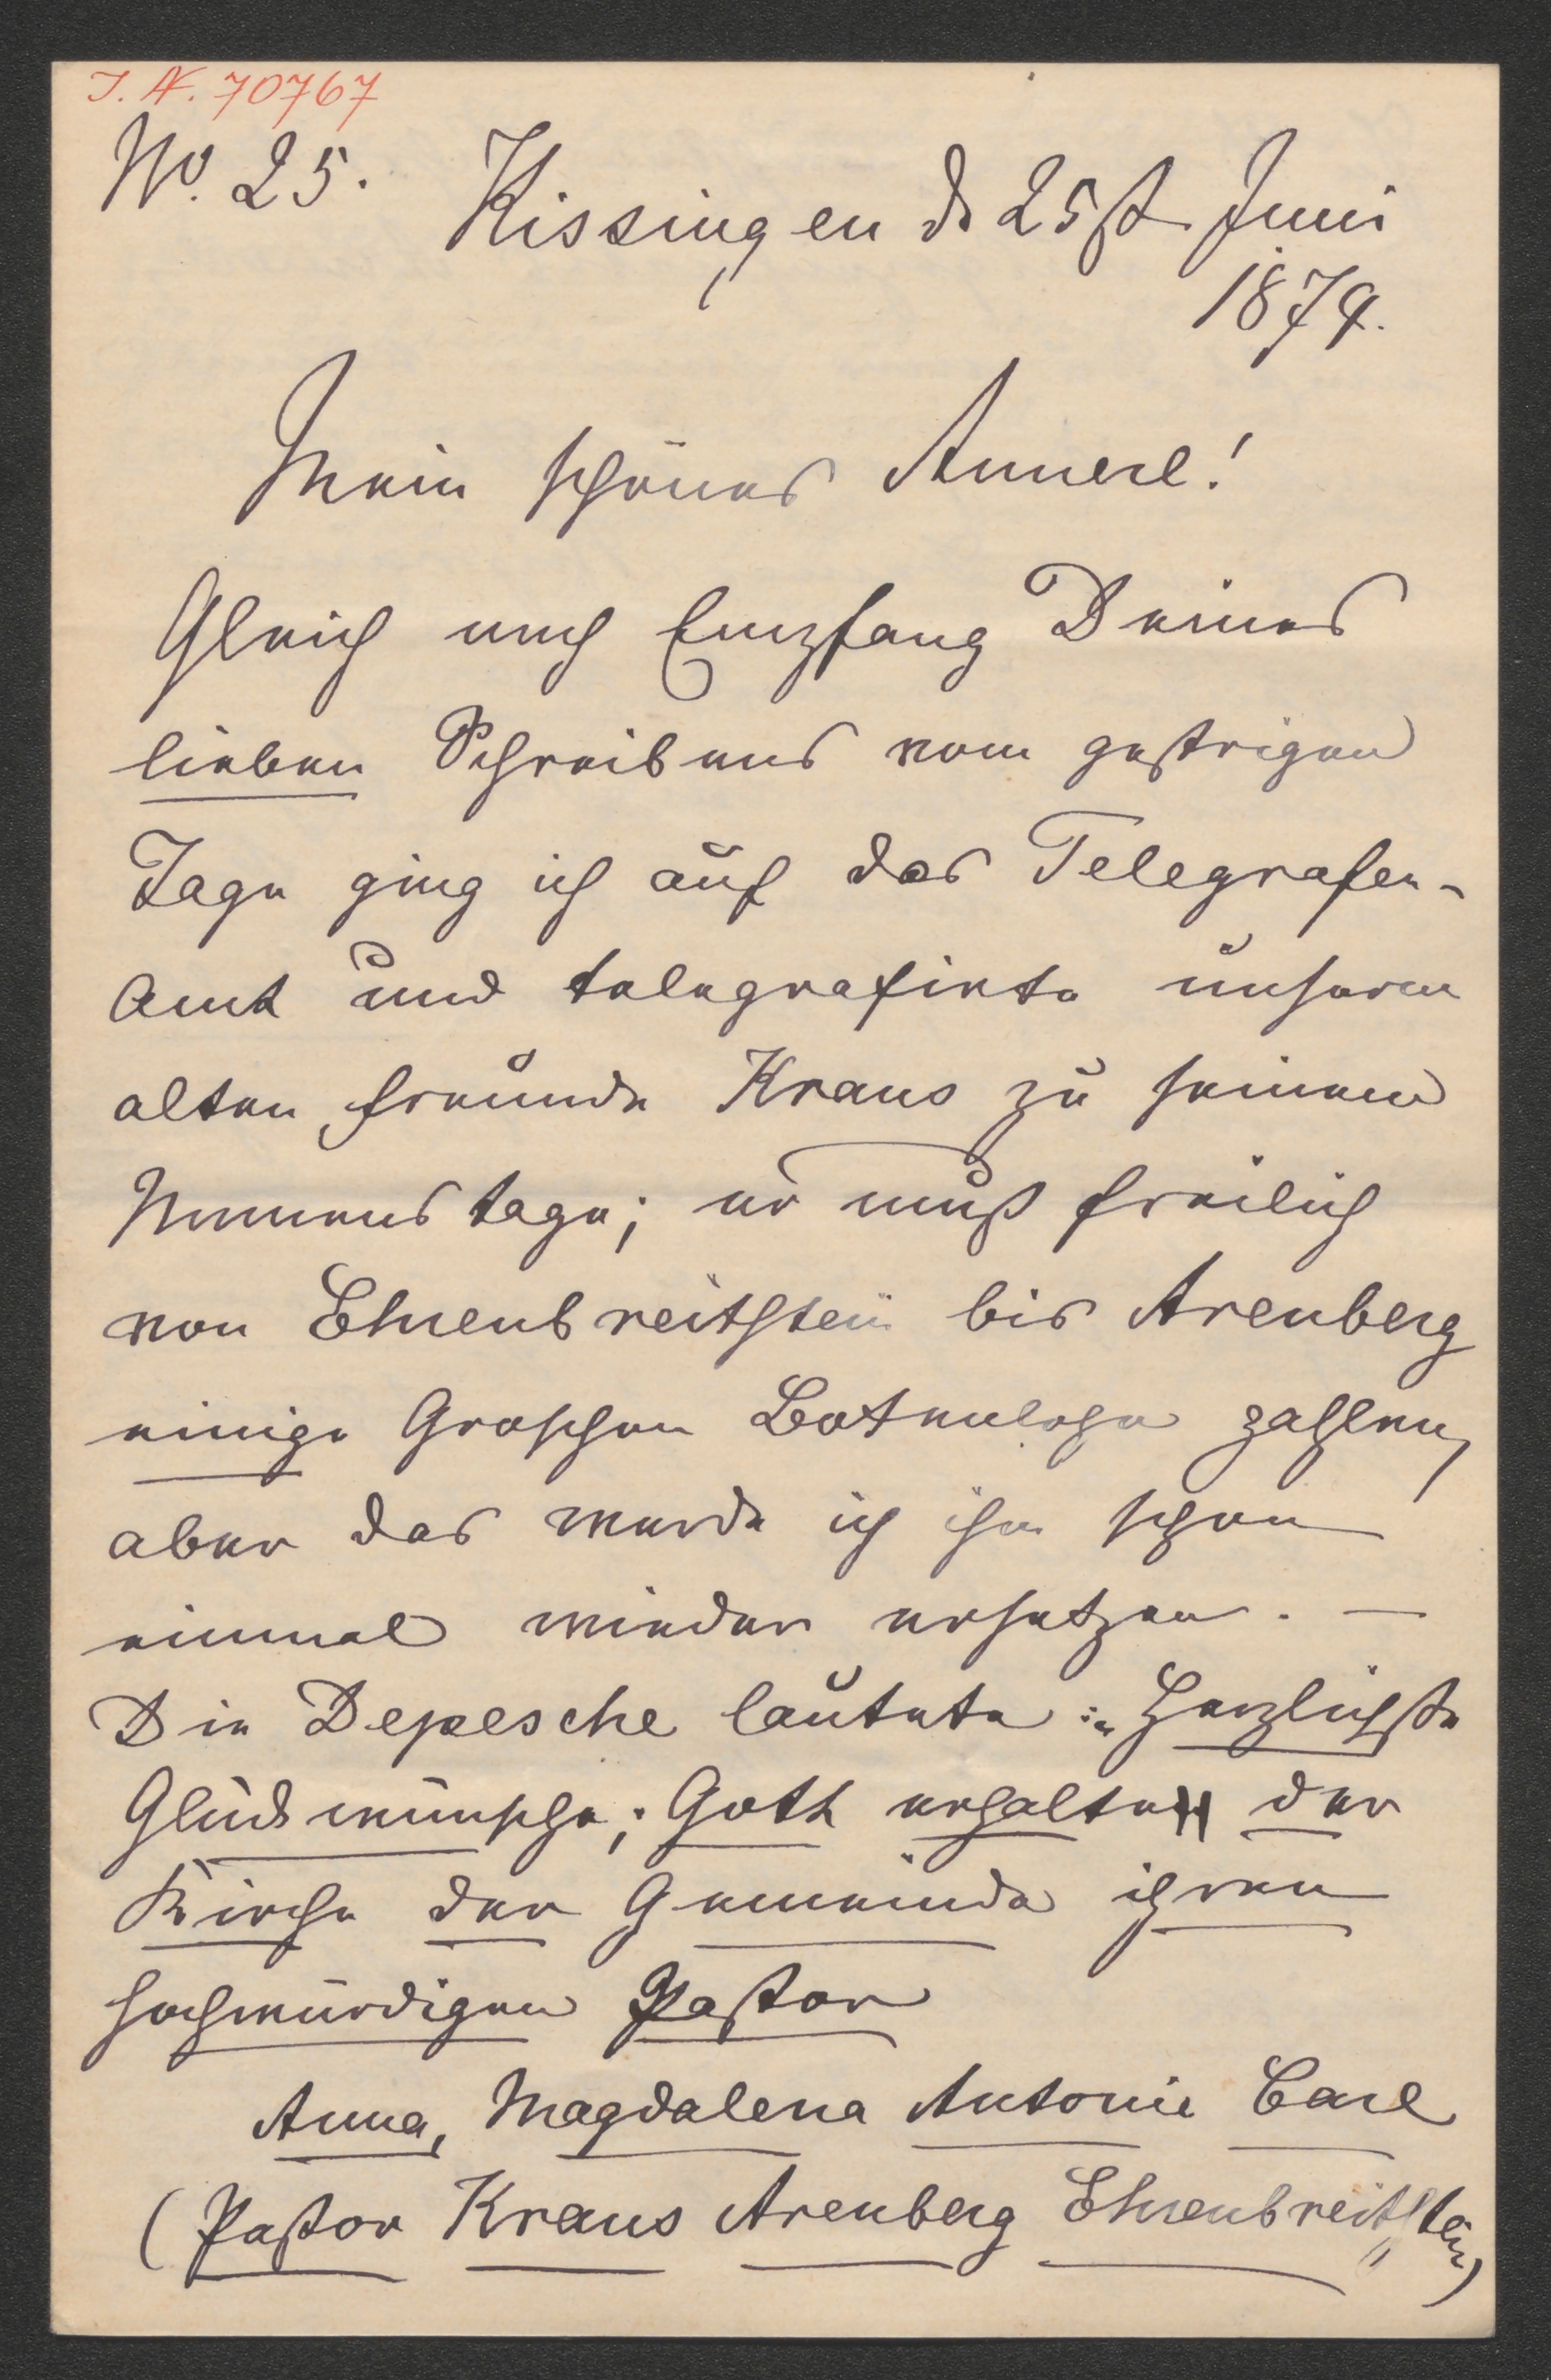 I. N. 70767
No. 25. Kissingen d. 25st Juni
1879.
Mein schönes Annerl!
Gleich nach Empfang Deines
lieben Schreibens vom gestrigen
Tage ging ich auf das Telegrafen-
Amt und telegrafirte unserem
alten Freunde Kraus zu seinem
Namenstage; er muß freilich
von Ehrenbreitstein bis Arenberg
einige Groschen Botenlohn zahlen,
aber das werde ich ihm schon
einmal wieder ersetzen. —
Die Depesche lautete: „Herzlichste
Glückwünsche; Gott erhalte der
Kirche der Gemeinde ihren
hochwürdigen Pastor
Anna, Magdalena Antonie Carl
(Pastor Kraus Arenberg Ehrenbreitstein)